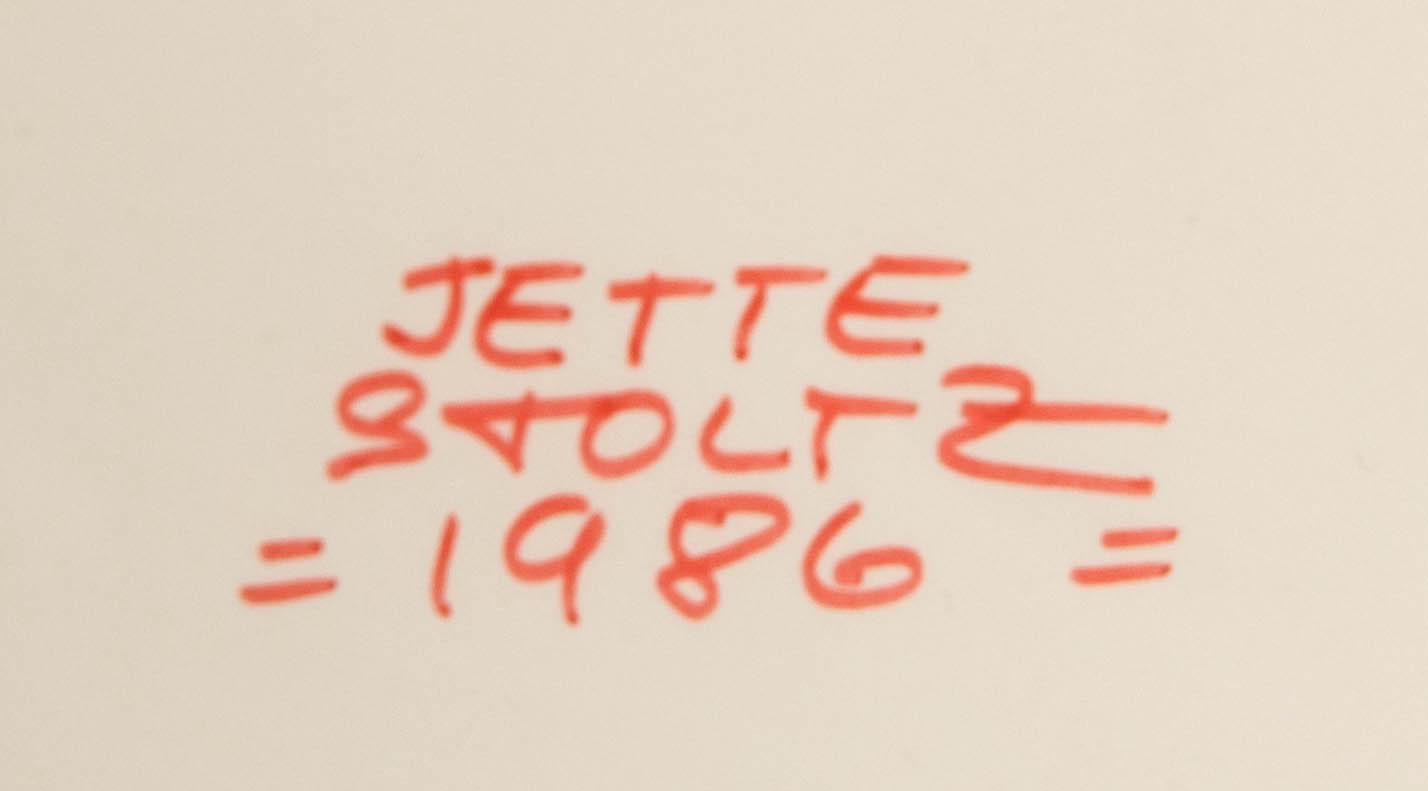 JETTE
STOLTZ
= 1986 =